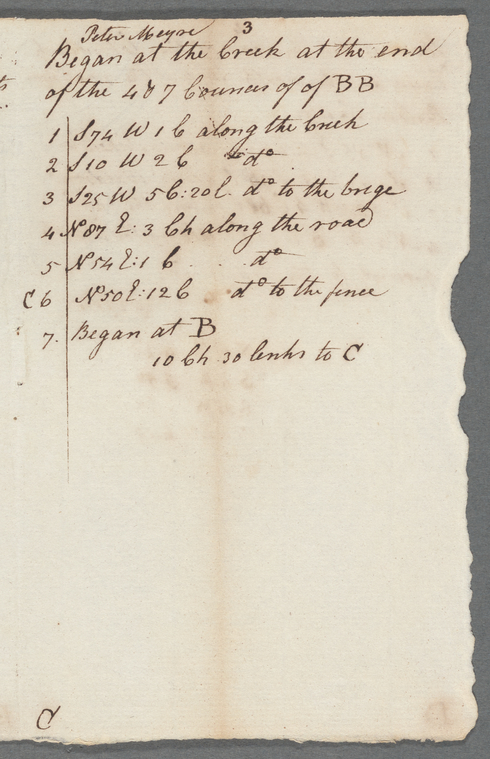 Peter Meyre 3
Began at the Creek at the end
of the 4 & 7 Cources of of BB
1 S74 W 1 C along the Creek
2 S10 W 2 C do
3 S25 W 5C:20l. do to the brige
4 N87 E: 3 Ch along the road
5 N54 E:1 C do
C 6 N50E:12 C do to the fence
7. Began at B
10 Ch 30 lenks to C
C